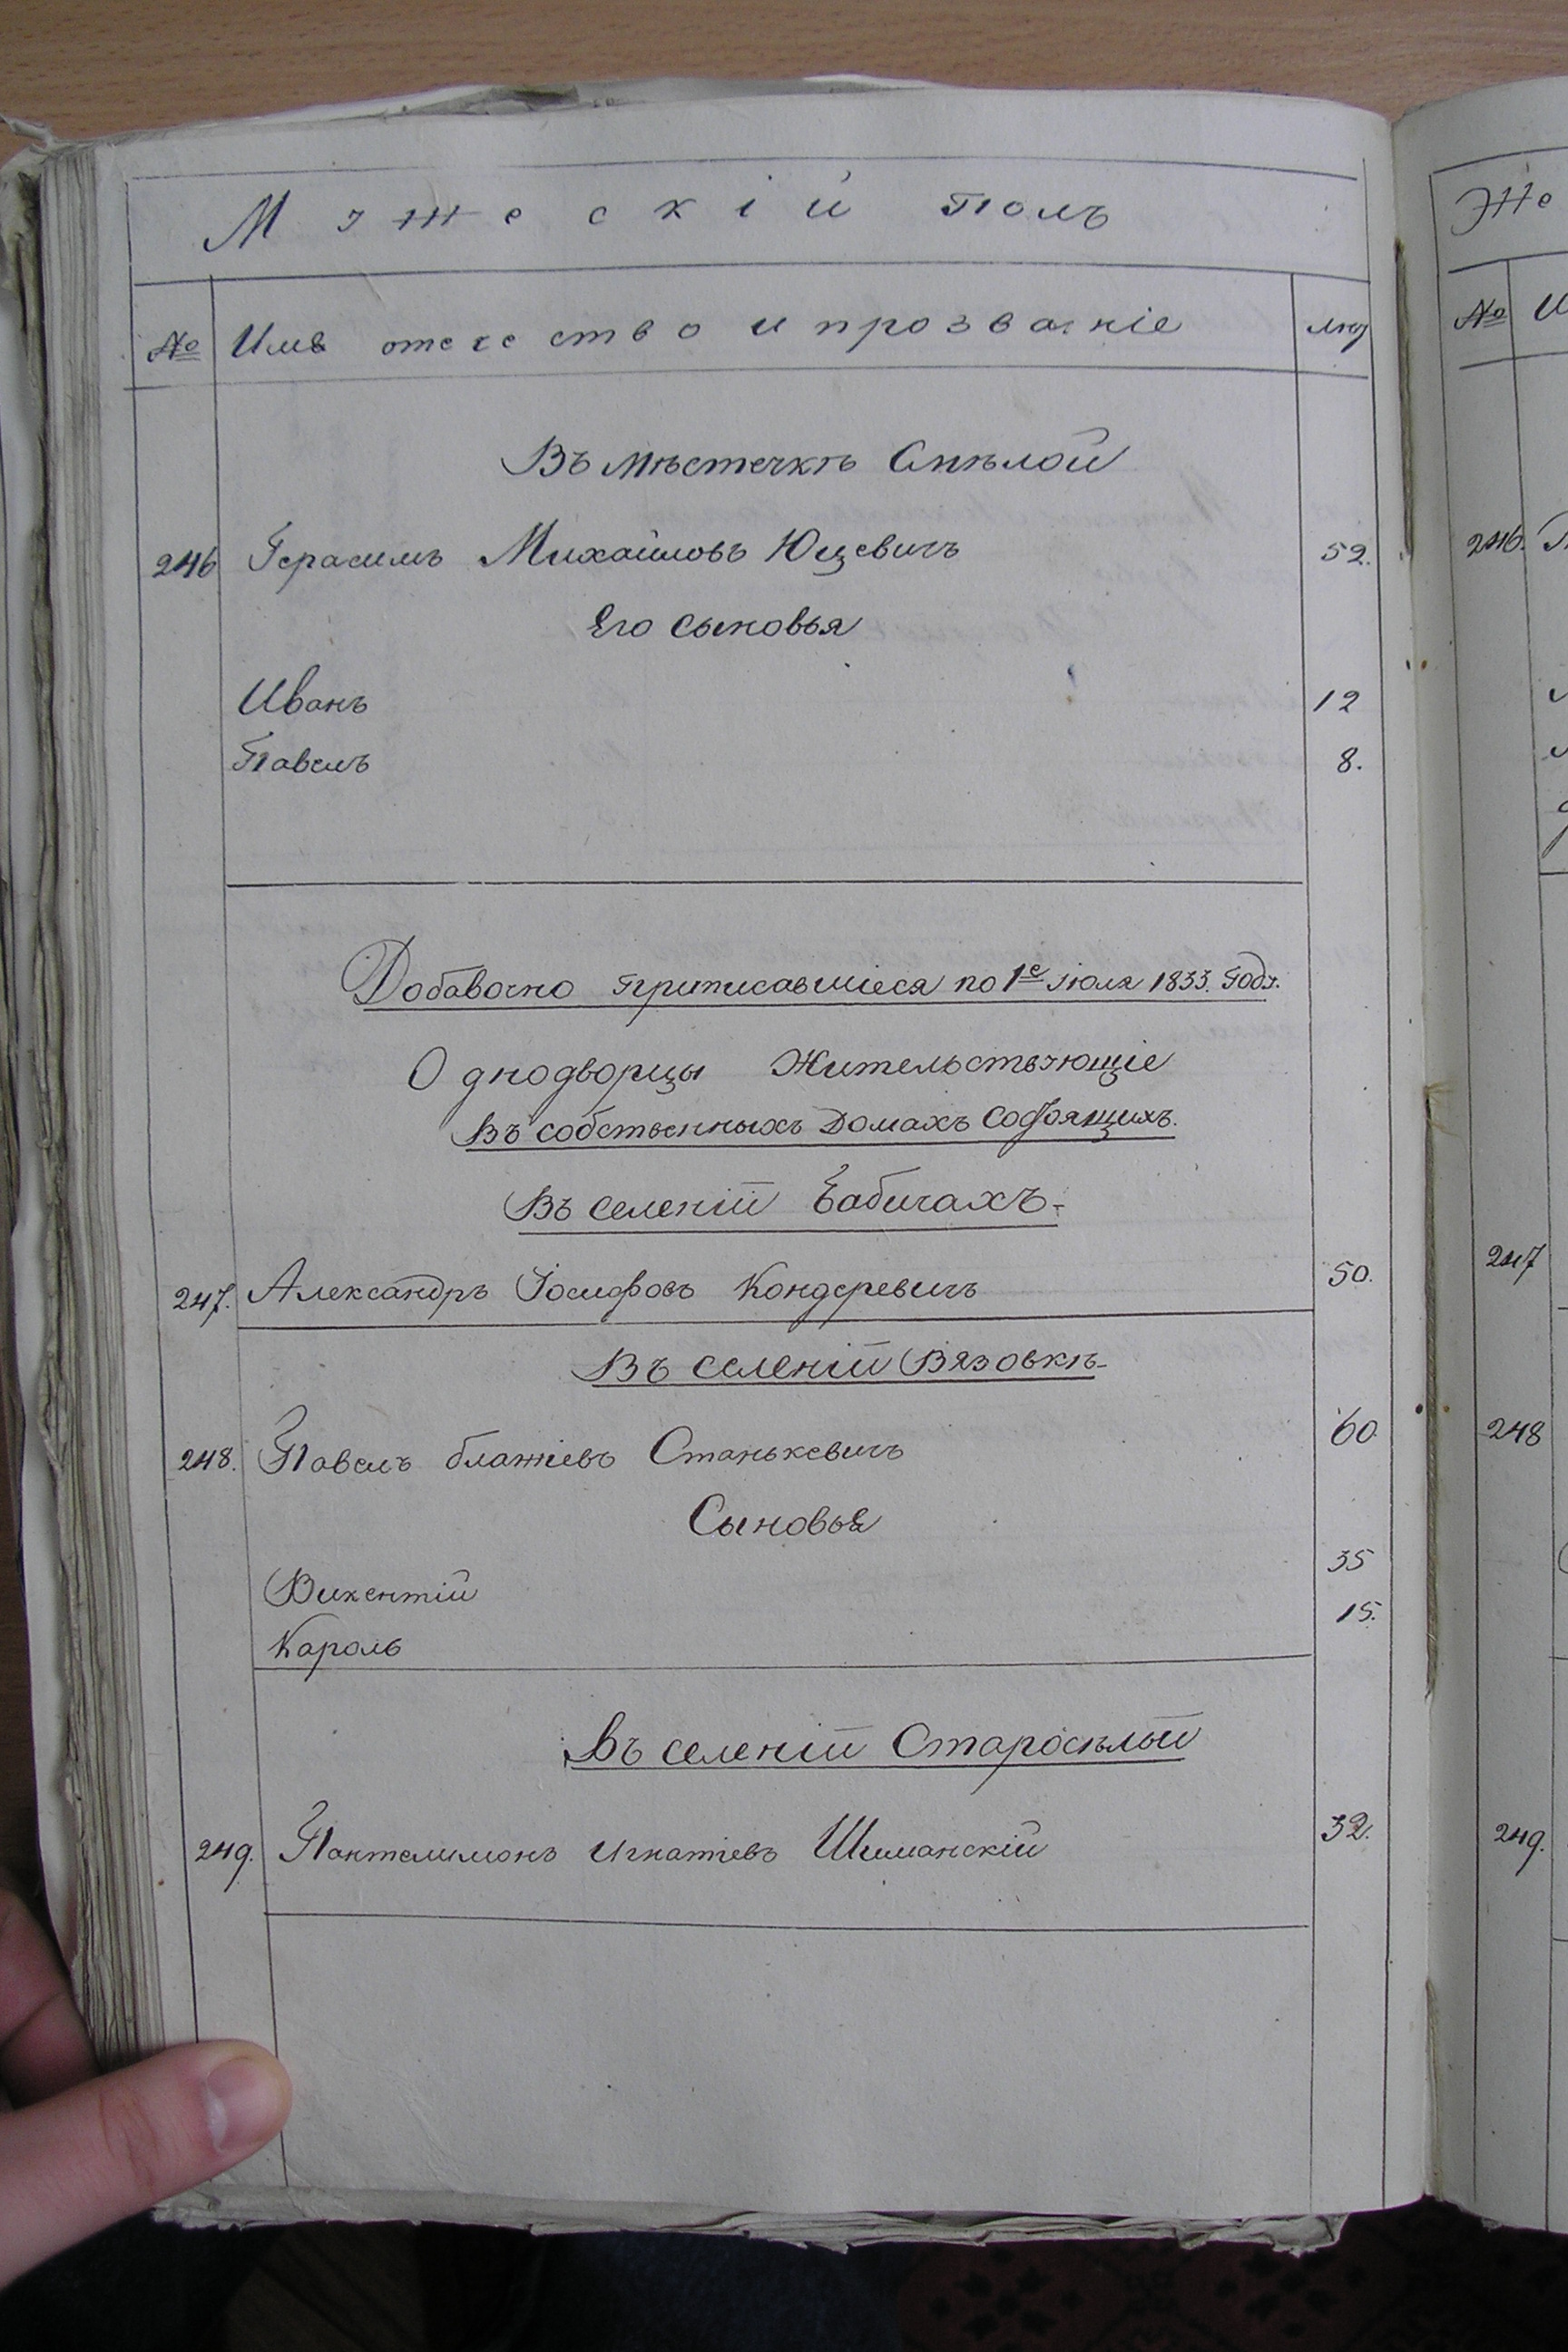 Мужескій полъ
№ Имя отечество и прозваніе лѣт
Въ мѣстечкѣ Смѣлой
246 Герасимъ Михайловъ Юцевичъ 52.
Его сыновья
Иванъ 12
Павелъ 8.
Добавочно приписавшіеся по 1е іюля 1833. году.
Однодворцы Жительствующіе
въ собственныхъ Домахъ состоящихъ.
Въ селеніи Бабичахъ
247. Александръ Іосифовъ Кондеревичъ 50.
Въ селеніи Вязовкѣ
248. Павелъ блажіевъ Станькевичъ 60
Сыновья
Викентій 35
Кароль 15.
Въ селеніи Старосѣлъи
249. Пантелимонъ Игнатіевъ Шиманскій 32.
Же
№ И
246.
247
248
249.